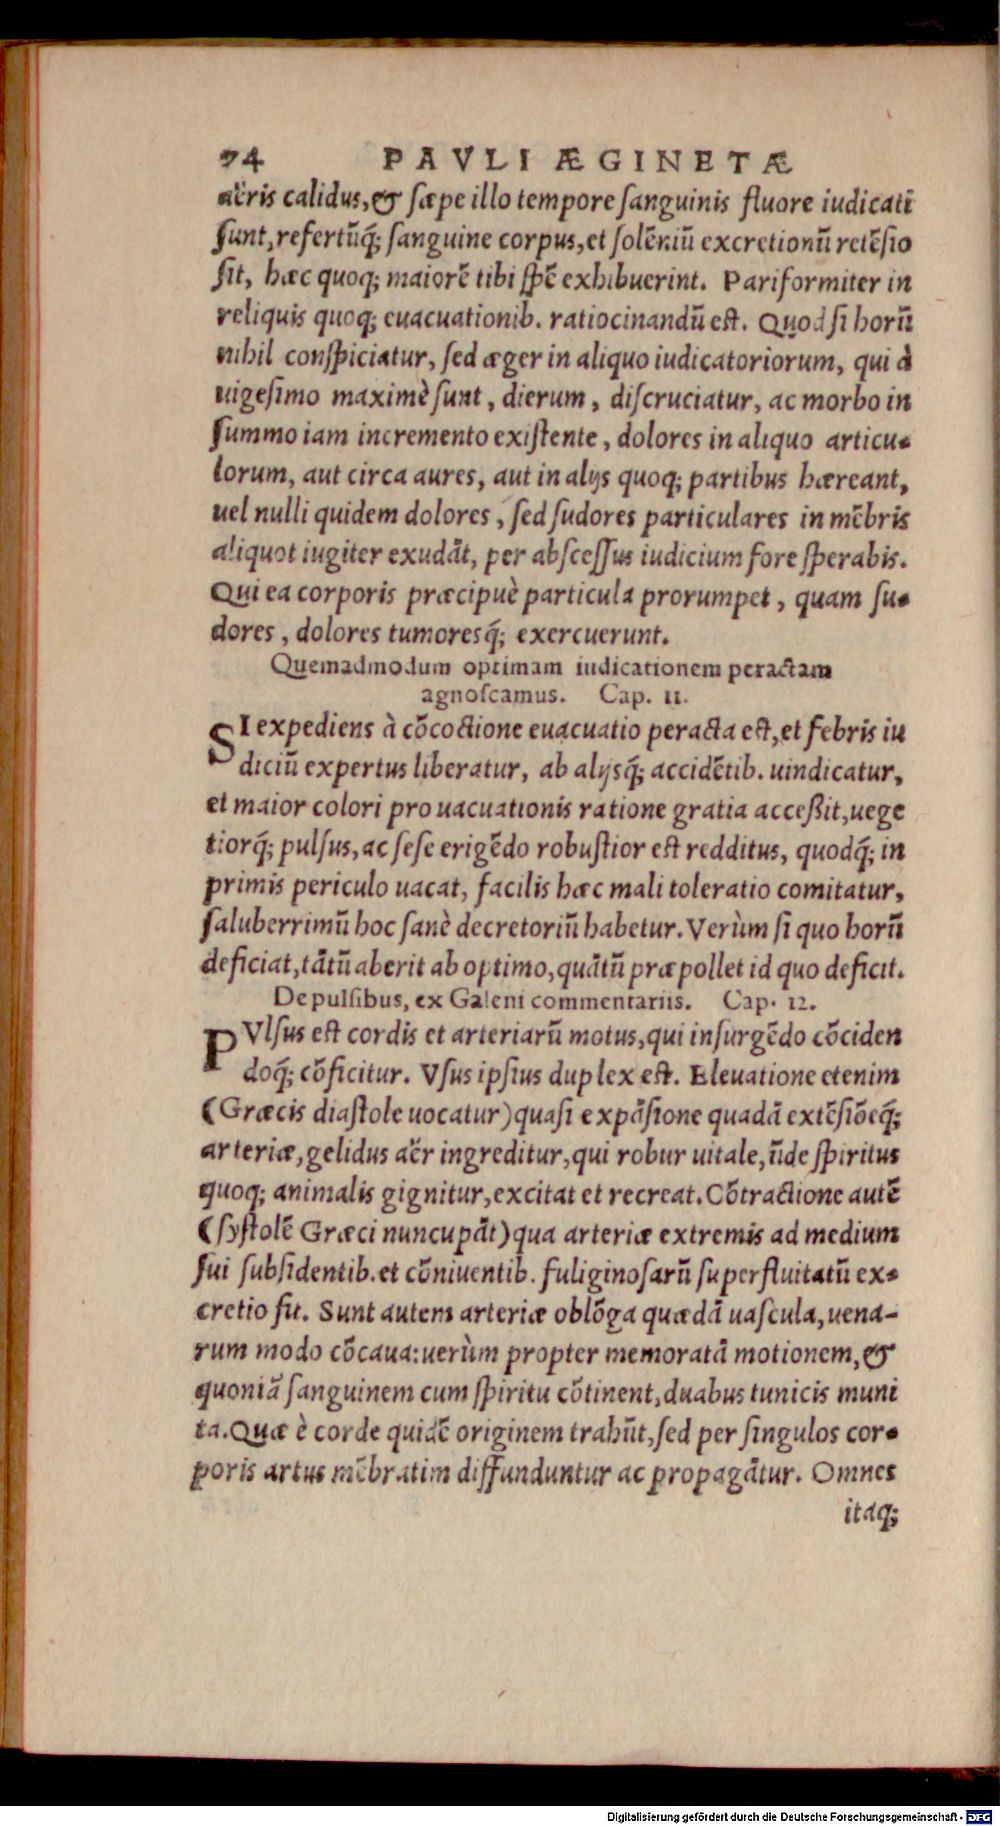 74 PAVLI ÆGINETÆ
aëris calidus, & sæpe illo tempore sanguinis fluore iudicati
sunt, refertūq́; sanguine corpus, et solēniū excretionū retēsio
sit, hæc quoq; maiorē tibi spē exhibuerint. Pariformiter in
reliquis quoq; euacuationib. ratiocinandū est. Quod si horū
nihil conspiciatur, sed æger in aliquo iudicatoriorum, qui à
uigesimo maximè sunt, dierum, discruciatur, ac morbo in
summo iam incremento existente, dolores in aliquo articu-
lorum, aut circa aures, aut in alijs quoq; partibus hæreant,
uel nulli quidem dolores, sed sudores particulares in mēbris
aliquot iugiter exudāt, per abscessus iudicium fore sperabis.
Qui ea corporis præcipuè particula prorumpet, quam su-
dores, dolores tumoresq́; exercuerunt.
Quemadmodum optimam iudicationem peractam
agnoscamus. Cap. 11.
SI expediens à cōcoctione euacuatio peracta est, et febris iu
diciū expertus liberatur, ab alijsq́; accidētib. uindicatur,
et maior colori pro uacuationis ratione gratia acceßit, uege
tiorq́; pulsus, ac sese erigēdo robustior est redditus, quodq́; in
primis periculo uacat, facilis hæc mali toleratio comitatur,
saluberrimū hoc sanè decretoriū habetur. Verùm si quo horū
deficiat, tātū aberit ab optimo, quātū præpollet id quo deficit.
De pulsibus, ex Galeni commentariis. Cap. 12.
PVlsus est cordis et arteriarū motus, qui insurgēdo cōciden
doq́; cōficitur. Vsus ipsius duplex est. Eleuatione etenim
(Græcis diastole uocatur) quasi expāsione quadā extēsiōeq́;
arteriæ, gelidus aër ingreditur, qui robur uitale, ūde spiritus
quoq; animalis gignitur, excitat et recreat. Cōtractione autē
(systolē Græci nuncupāt) qua arteriæ extremis ad medium
sui subsidentib. et cōniuentib. fuliginosarū superfluitatū ex-
cretio fit. Sunt autem arteriæ oblōga quædā uascula, uena-
rum modo cōcaua: uerùm propter memoratā motionem, &
quoniā sanguinem cum spiritu cōtinent, duabus tunicis muni
ta. Quæ è corde quidē originem trahūt, sed per singulos cor-
poris artus mēbratim diffunduntur ac propagātur. Omnes
itaq;
Digitalisierung gefördert durch die Deutsche Forschungsgemeinschaft - DFG